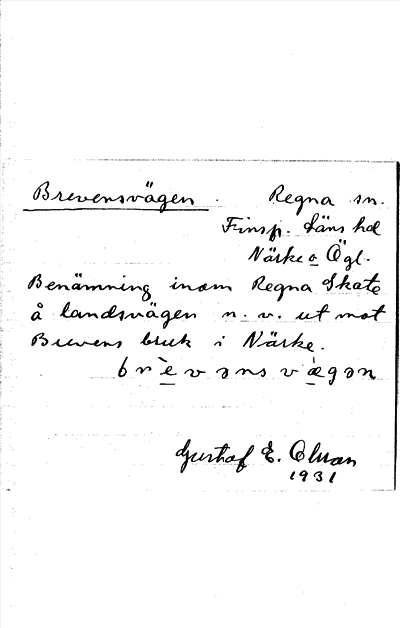 Brevensvägen. Regna sn.
Finsp. Läns hd
Närke o Ögl.
Benämning inom Regna Skate
å landsvägen n. v. ut mot
Brevens bruk i Närke.
brè̱vənsvæ̱̀gən
Gustaf E.
1931